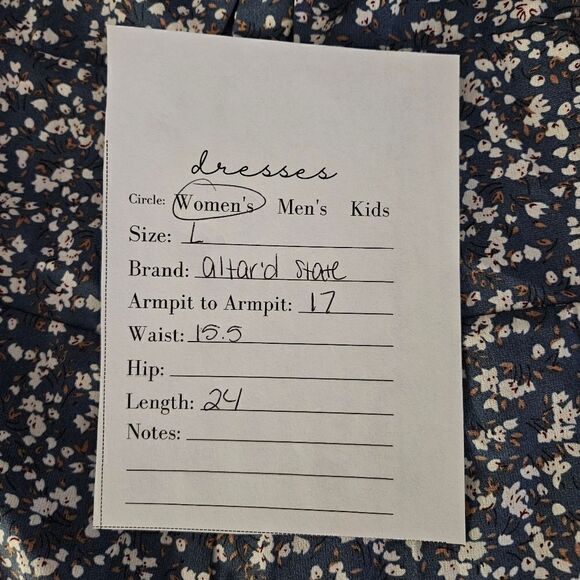 dresses
Circle: Women's Men's Kids
Size: L
Brand: altar'd state
Armpit to Armpit: 17
Waist: 15.5
Hip:
Length: 24
Notes: